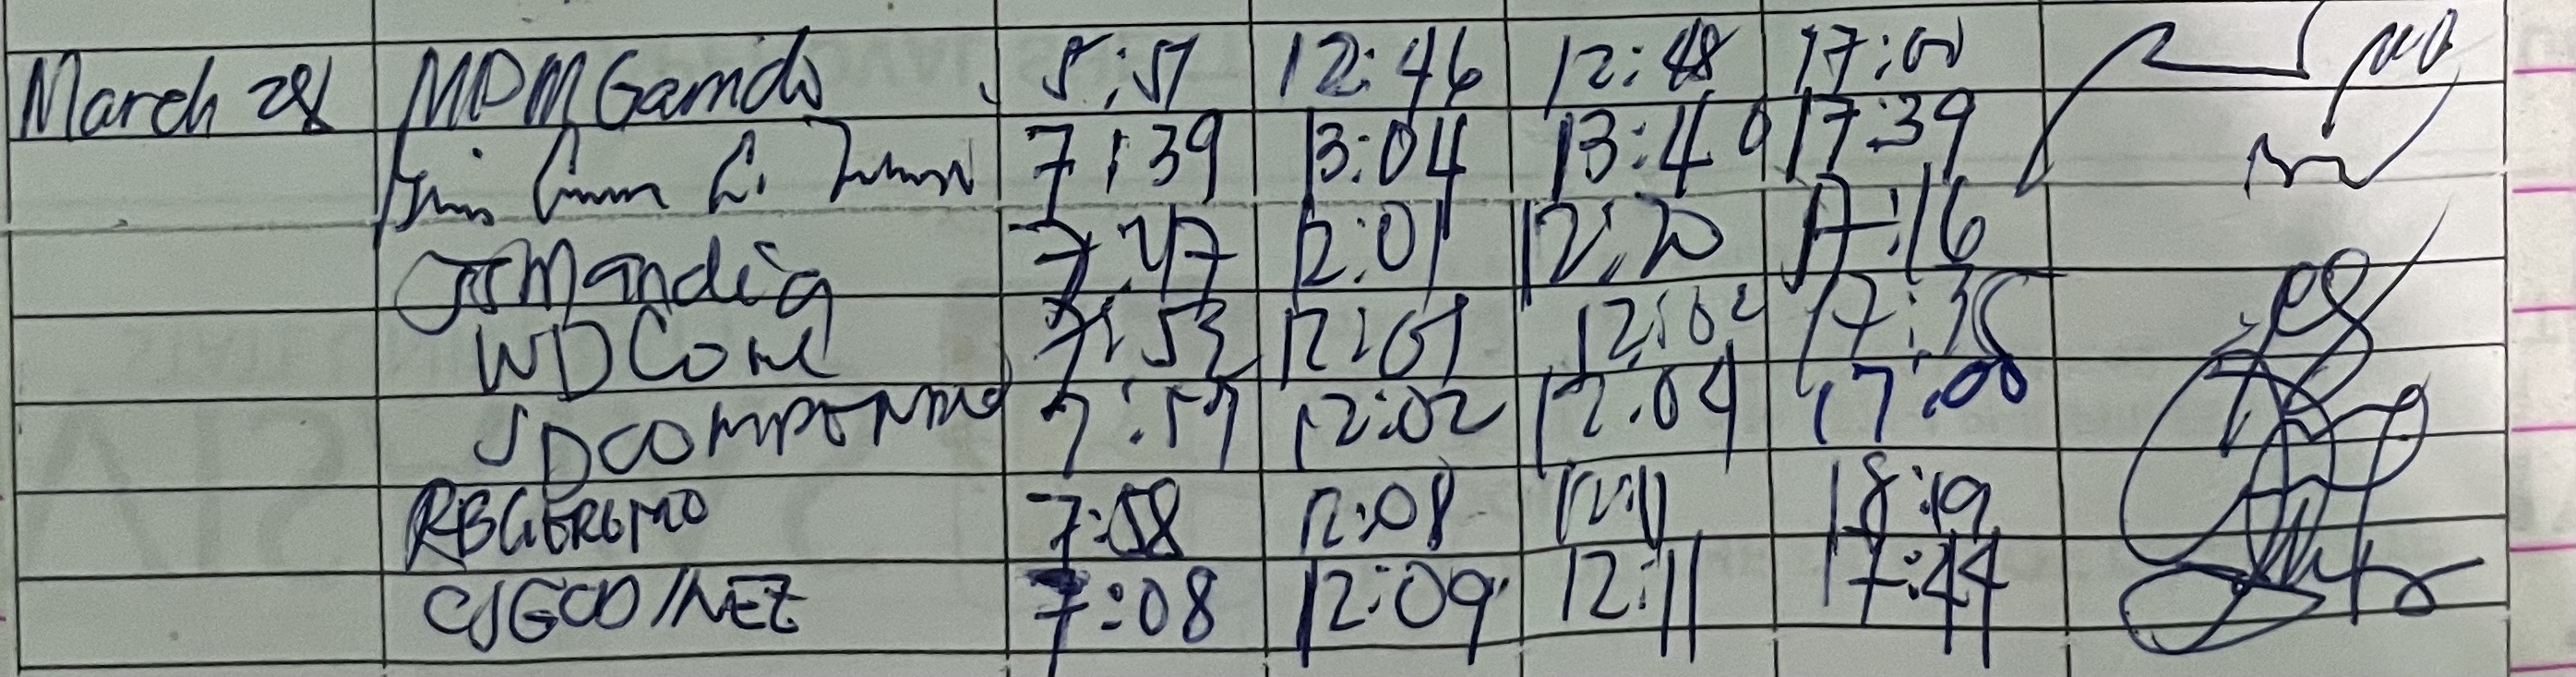 March 28 MDMGarrido 5:51 12:46 12:48 17:00
7:39 13:04 13:40 17:39
JSMandia 7:47 12:01 12:20 17:16
WDCone 7:53 12:01 12:02 17:35
JDCOMPENDIO 7:57 12:02 12:04 17:00
RBGERGMO 7:58 12:08 12:11 18:19
CJGCODINEZ 7:08 12:09 12:11 17:44